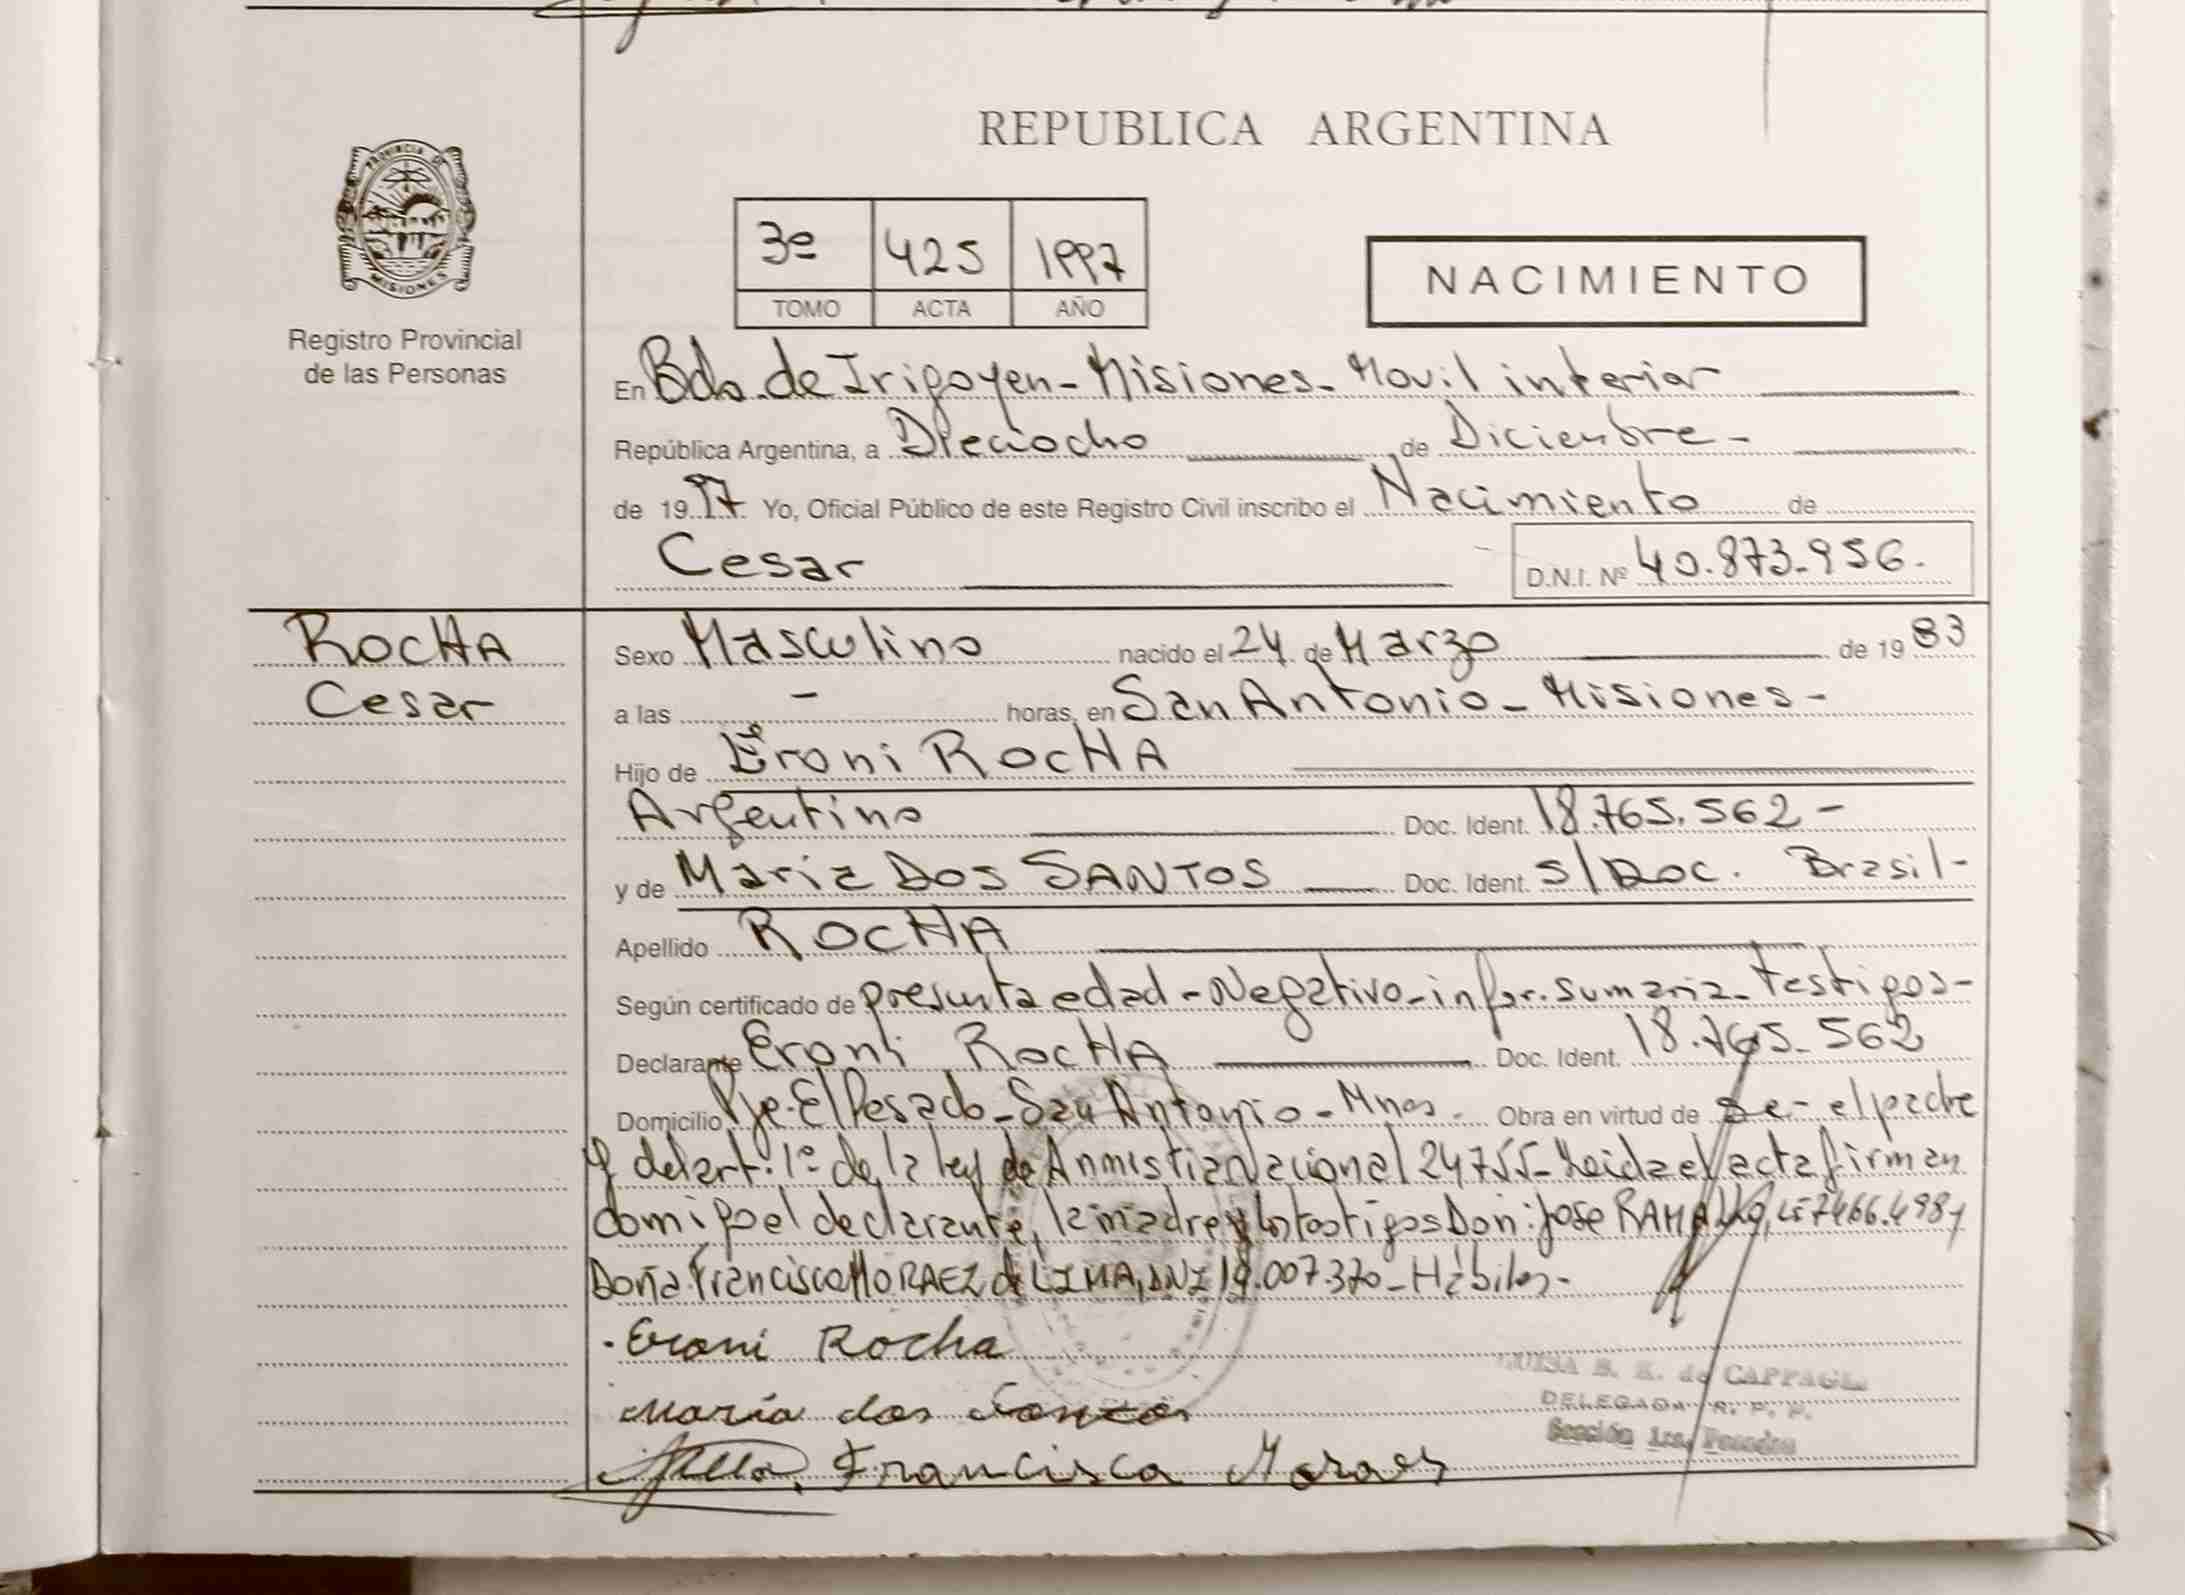 REPUBLICA ARGENTINA
PROVINCIA DE
MISIONES
Registro Provincial
de las Personas
3º 425 1997
TOMO ACTA AÑO
NACIMIENTO
En Bdo. de Irigoyen - Misiones - Movil interior
República Argentina, a Dieciocho de Diciembre -
de 1997 Yo, Oficial Público de este Registro Civil inscribo el Nacimiento de
Cesar D.N.I. Nº 40.873.956.
ROCHA
Cesar
Sexo Masculino nacido el 24 de Marzo de 1983
a las - horas, en San Antonio - Misiones -
Hijo de Eroni ROCHA
Argentino Doc. Ident. 18.765.562 -
y de Maria DOS SANTOS Doc. Ident. S/Doc. Brasil -
Apellido ROCHA
Según certificado de presunta edad - Negativo - infor. sumaria - testigos -
Declarante Eroni ROCHA Doc. Ident. 18.765.562
Domicilio Pje. El Pesado - San Antonio - Mnes. - Obra en virtud de Ser - el padre
y del art. 1º de la ley de Anmistia Nacional 24755 - Leida el acta firman
comigo el declarante, la madre y los testigos Don: Jose RAMALHO, LE 7466.498 y
Doña Francisca MORAEZ de LIMA, DNI 19.007.370 - Hábiles -
. Eroni Rocha
María dos Santos
Francisca Moraes
LUISA B. K. de CAPPAGLI
DELEGADA R. P. P.
Sección 1ra. Posadas